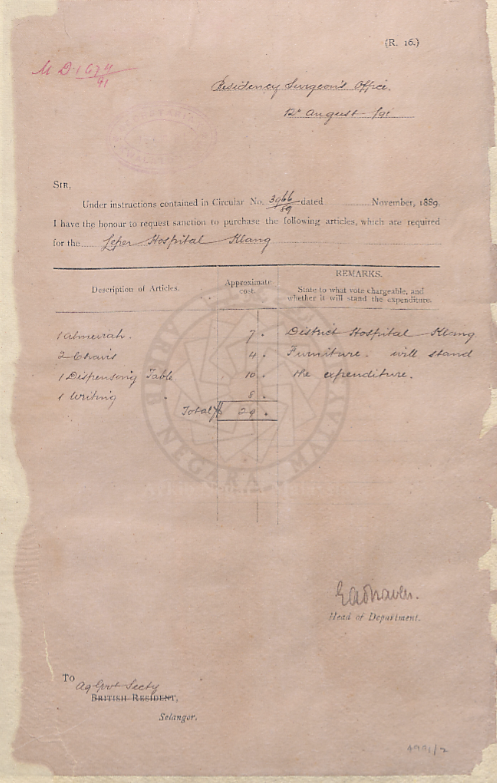 (R. 16.)
M D 1674/91
Residency Surgeon's Office.
12th August /91.
SIR,
Under instructions contained in Circular No. 3066/89 dated November, 1889.
I have the honour to request sanction to purchase the following articles, which are required
for the Leper Hospital Klang
Description of Articles. Approximate cost. REMARKS.
State to what vote chargeable, and whether it will stand the expenditure.
1 Almeirah. 7. District Hospital Klang
2 Chairs 4. Furniture. will stand
1 Dispensing Table 10. the expenditure.
1 Writing " 8.
Total $ 29.
ARKIB NEGARA MALAYSIA
Head of Department.
To
Ag Govt Secty
BRITISH RESIDENT,
Selangor.